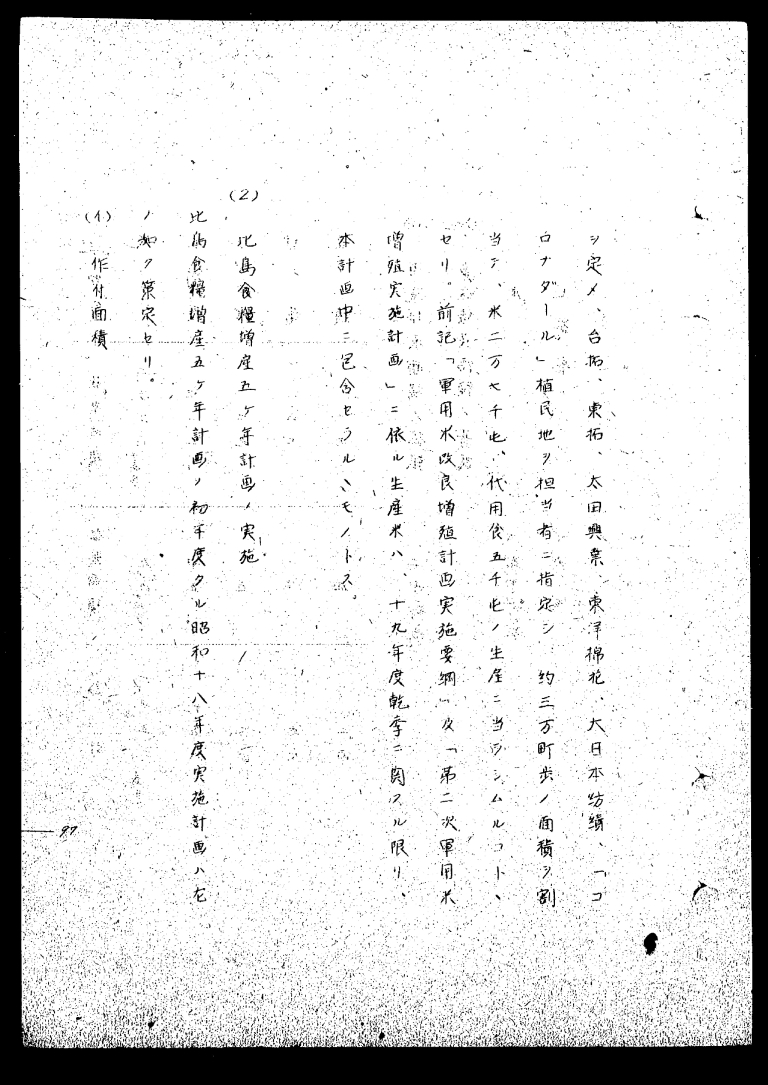 ヲ定メ、台拓、東拓、太田興業、東洋棉花、大日本紡績、「コ
ロナダール」植民地ヲ担当者ニ指定シ 約三万町歩ノ面積ヲ割
当テ、米二万七千屯、代用食五千屯ノ生産ニ当ラシムルコトヽ
セリ。前記「軍用米改良増殖計画実施要綱」及「第二次軍用米
増殖実施計画」ニ依ル生産米ハ、十九年度乾季ニ関スル限リ、
本計画中ニ包含セラルヽモノトス。
(2) 比島食糧増産五ヶ年計画ノ実施
比島食糧増産五ヶ年計画ノ初年度タル昭和十八年度実施計画ハ左
ノ如ク策定セリ。
(イ) 作付面積
97